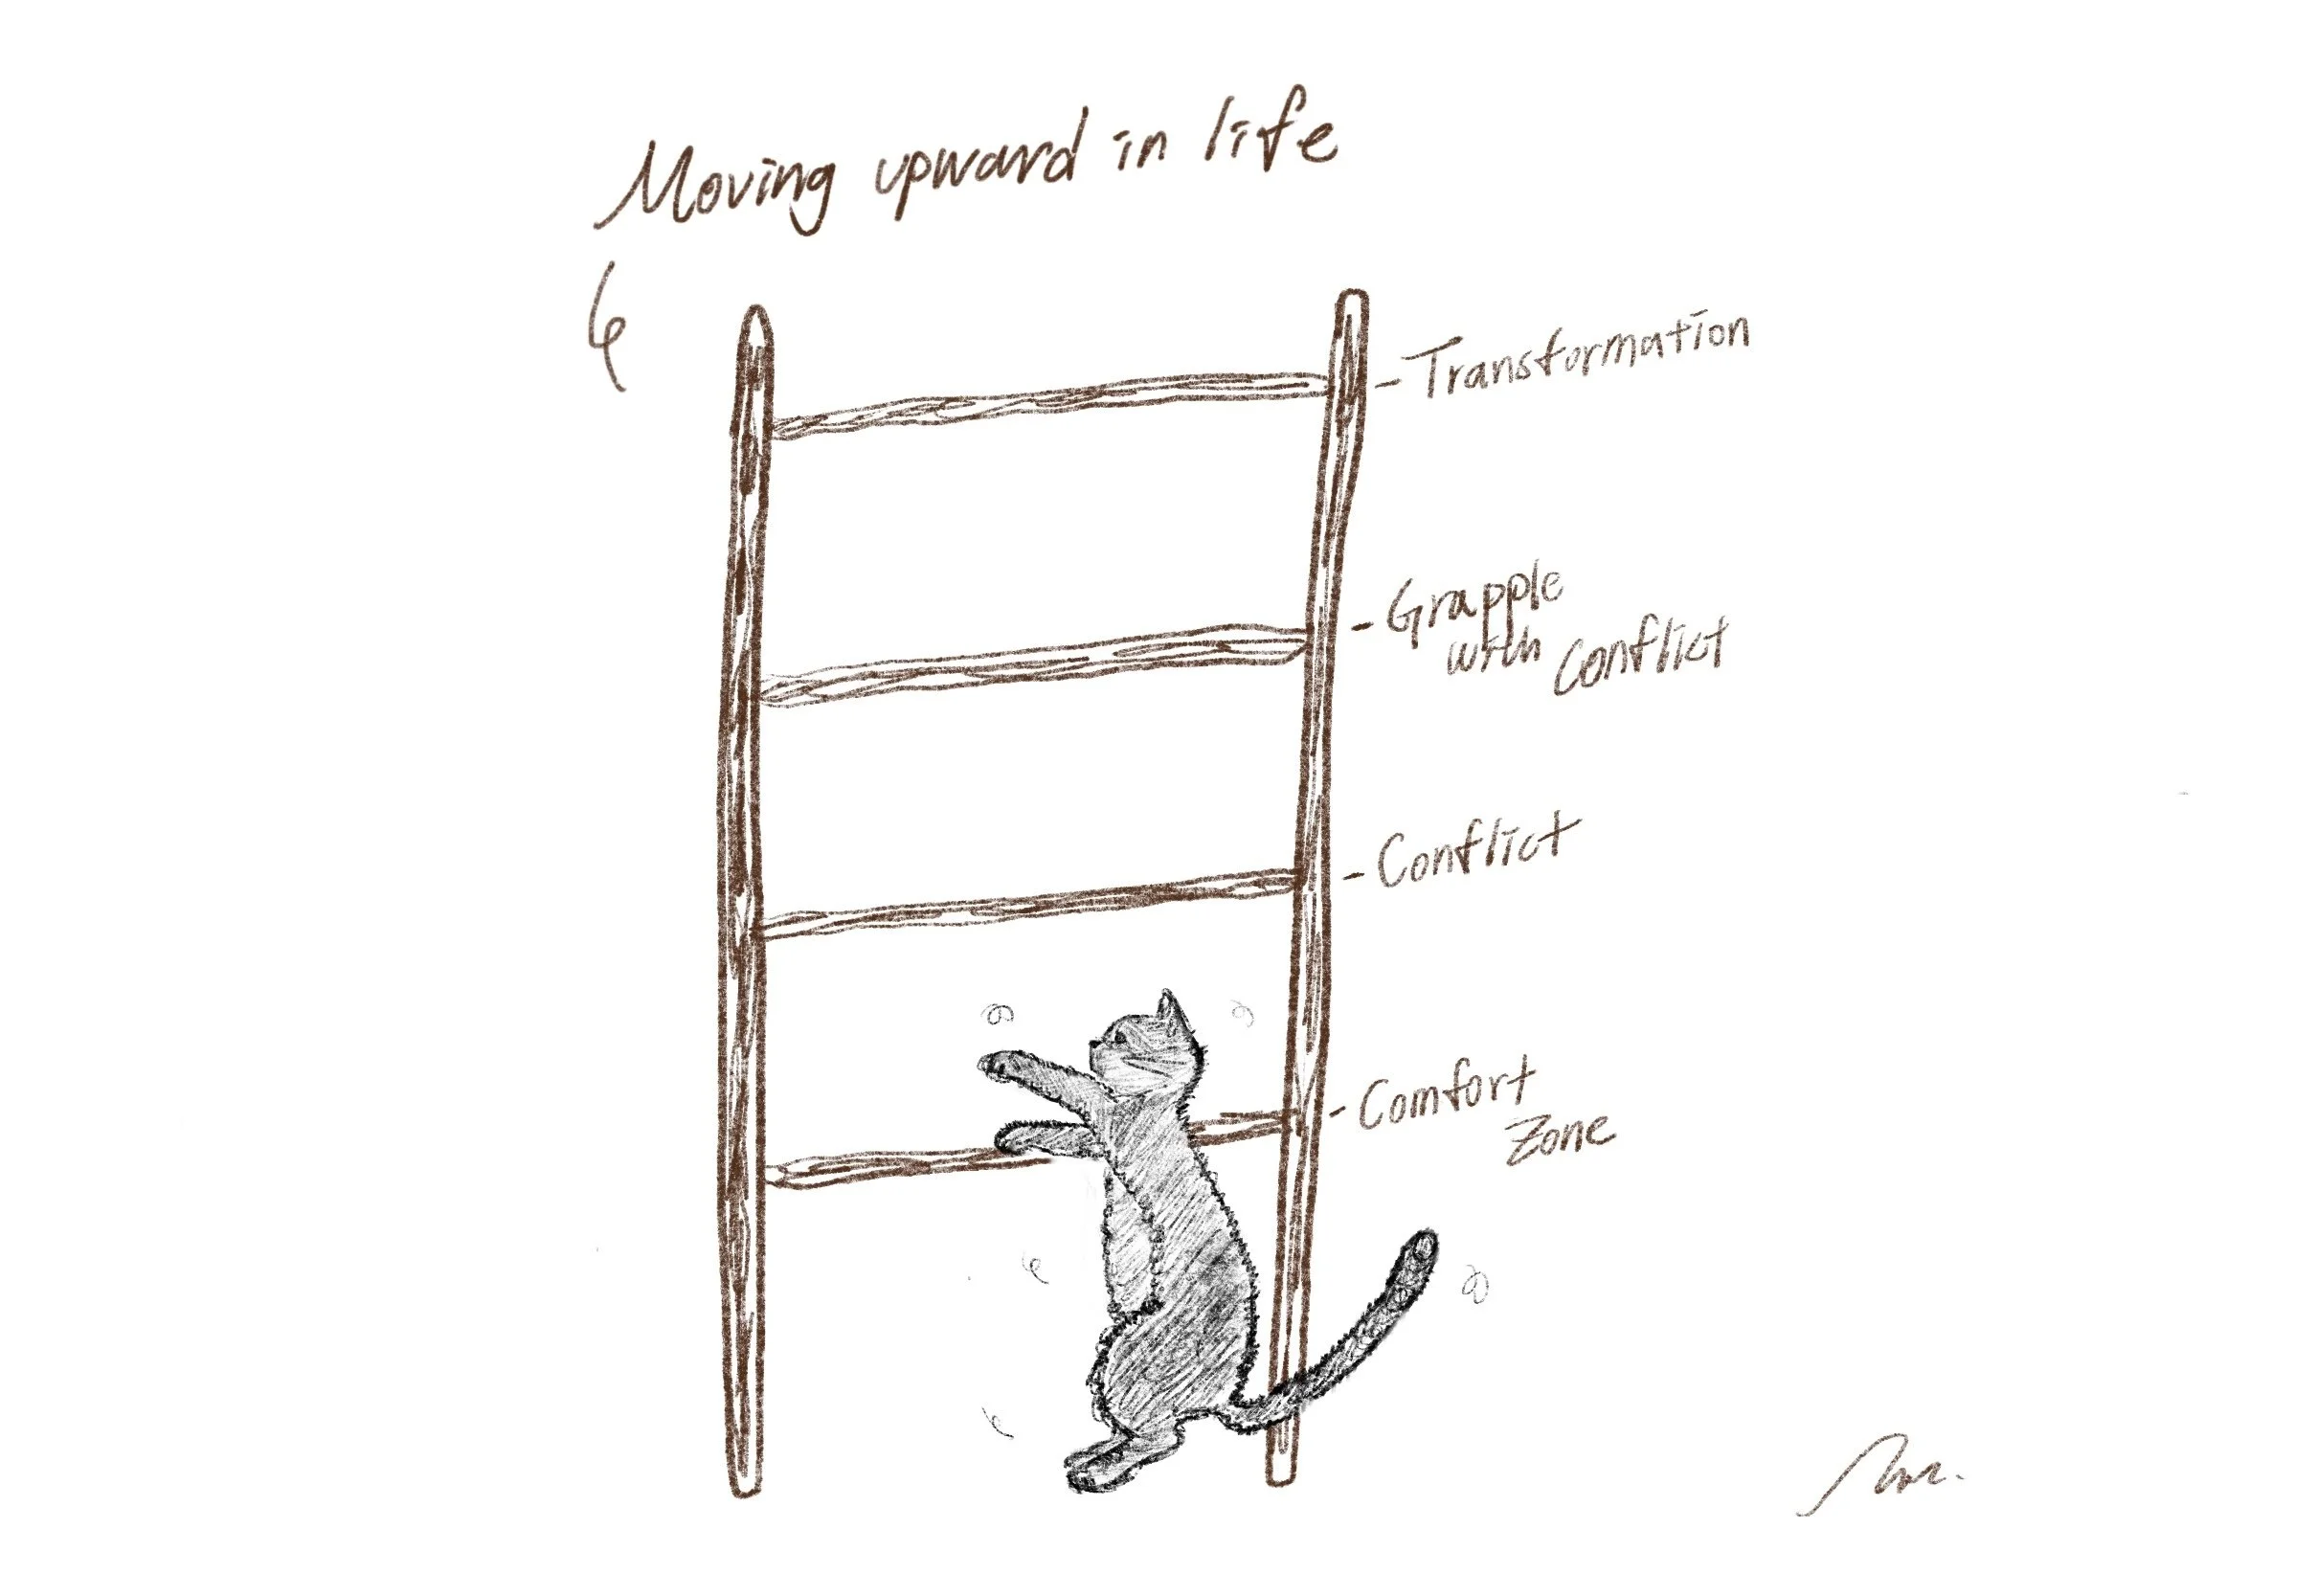 Moving upward in life
- Transformation
- Grapple
with conflict
- Conflict
- Comfort
Zone